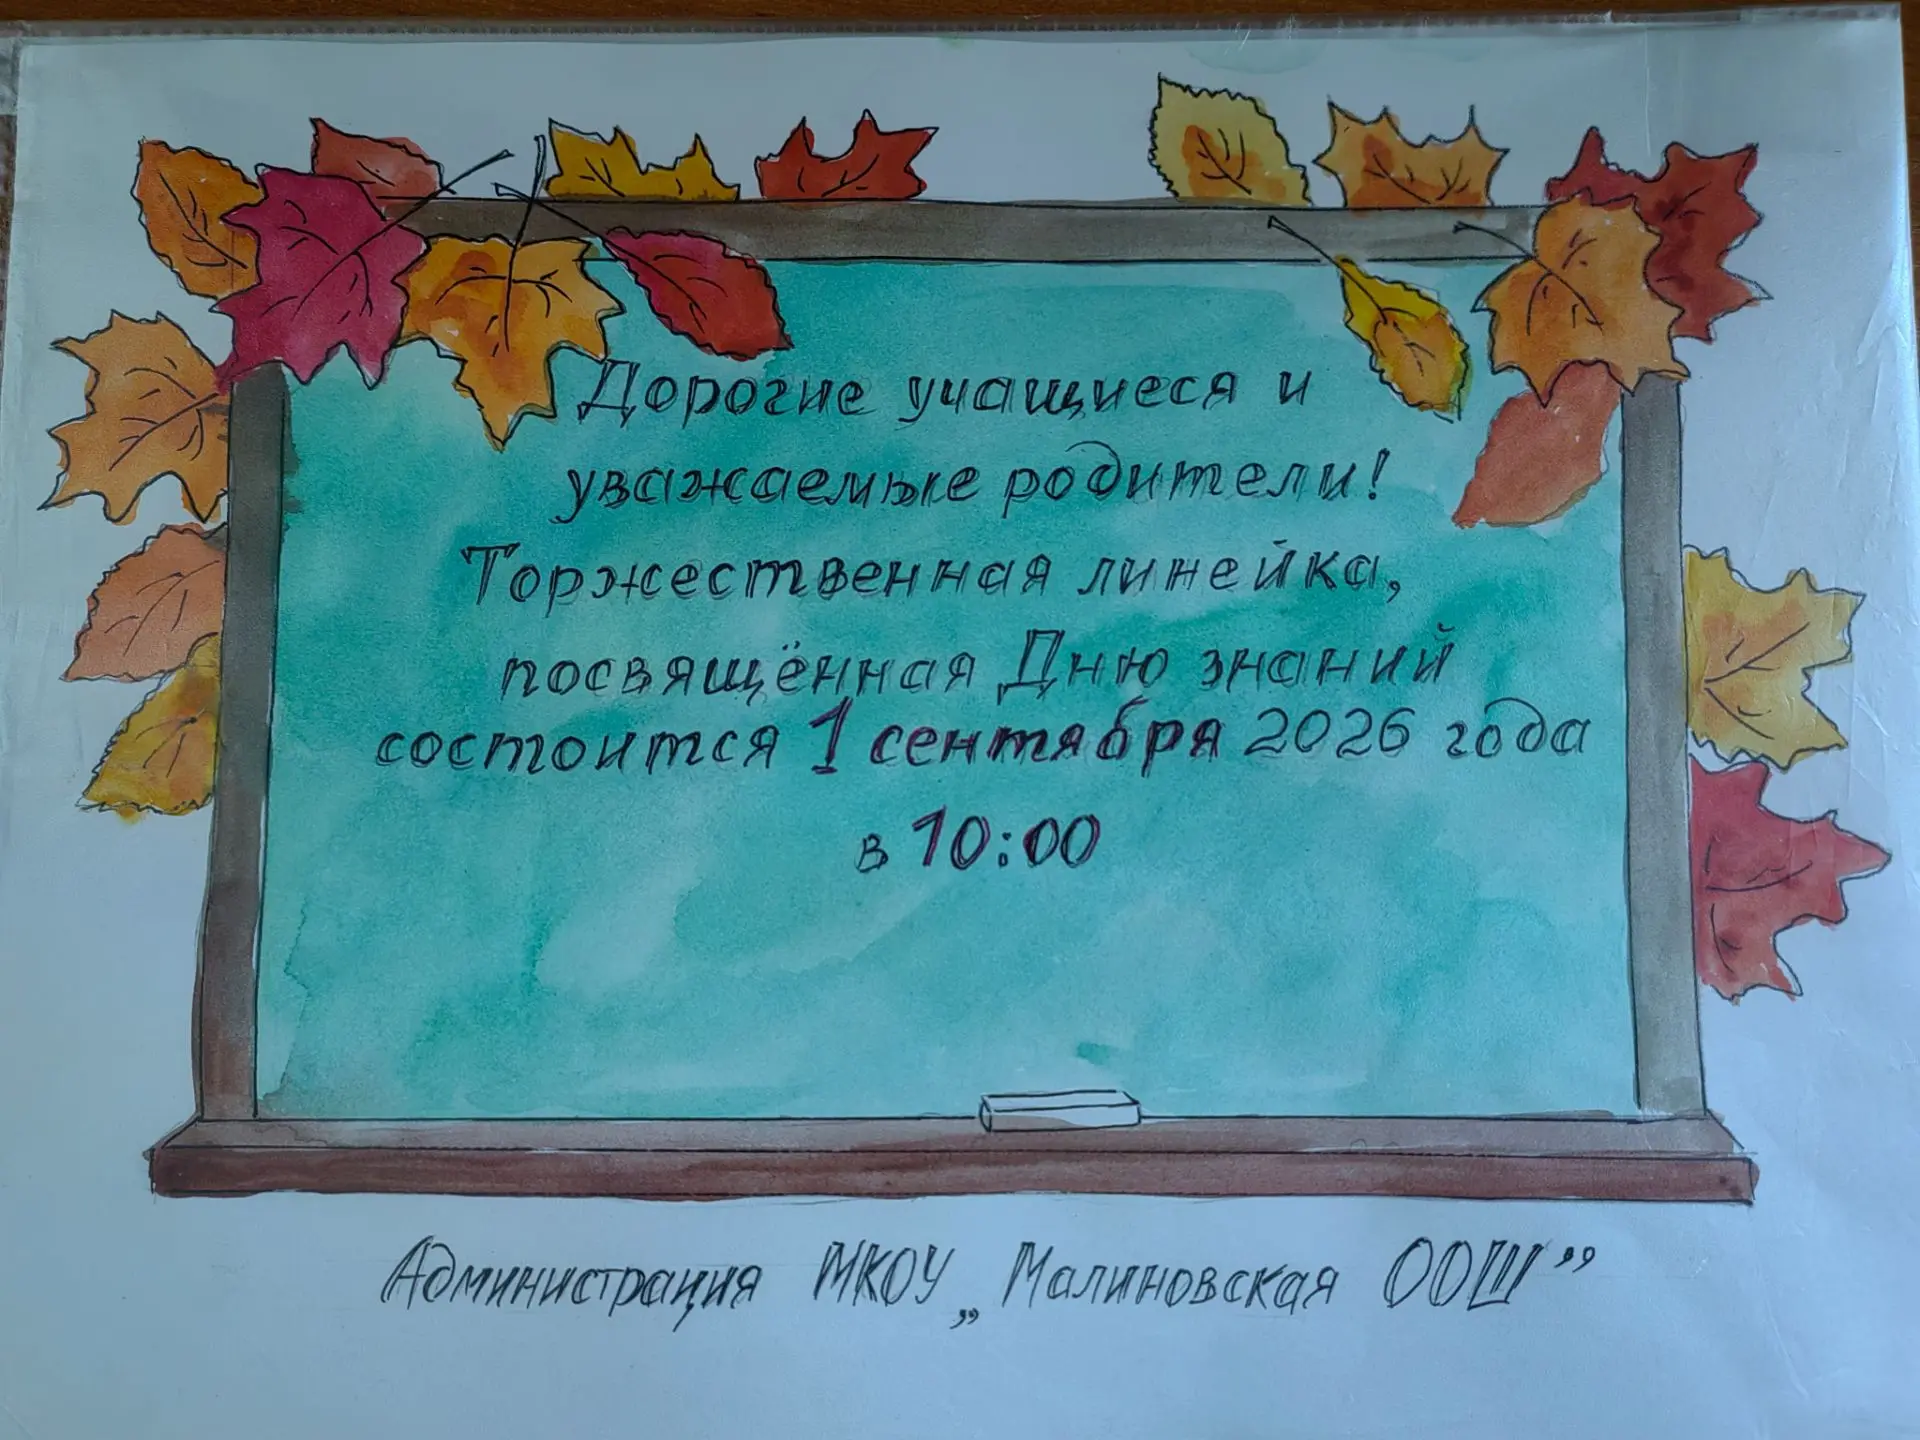 Дорогие учащиеся и
уважаемые родители!
Торжественная линейка,
посвящённая Дню знаний
состоится 1 сентября 2026 года
в 10:00
Администрация МКОУ „Малиновская ООШ”